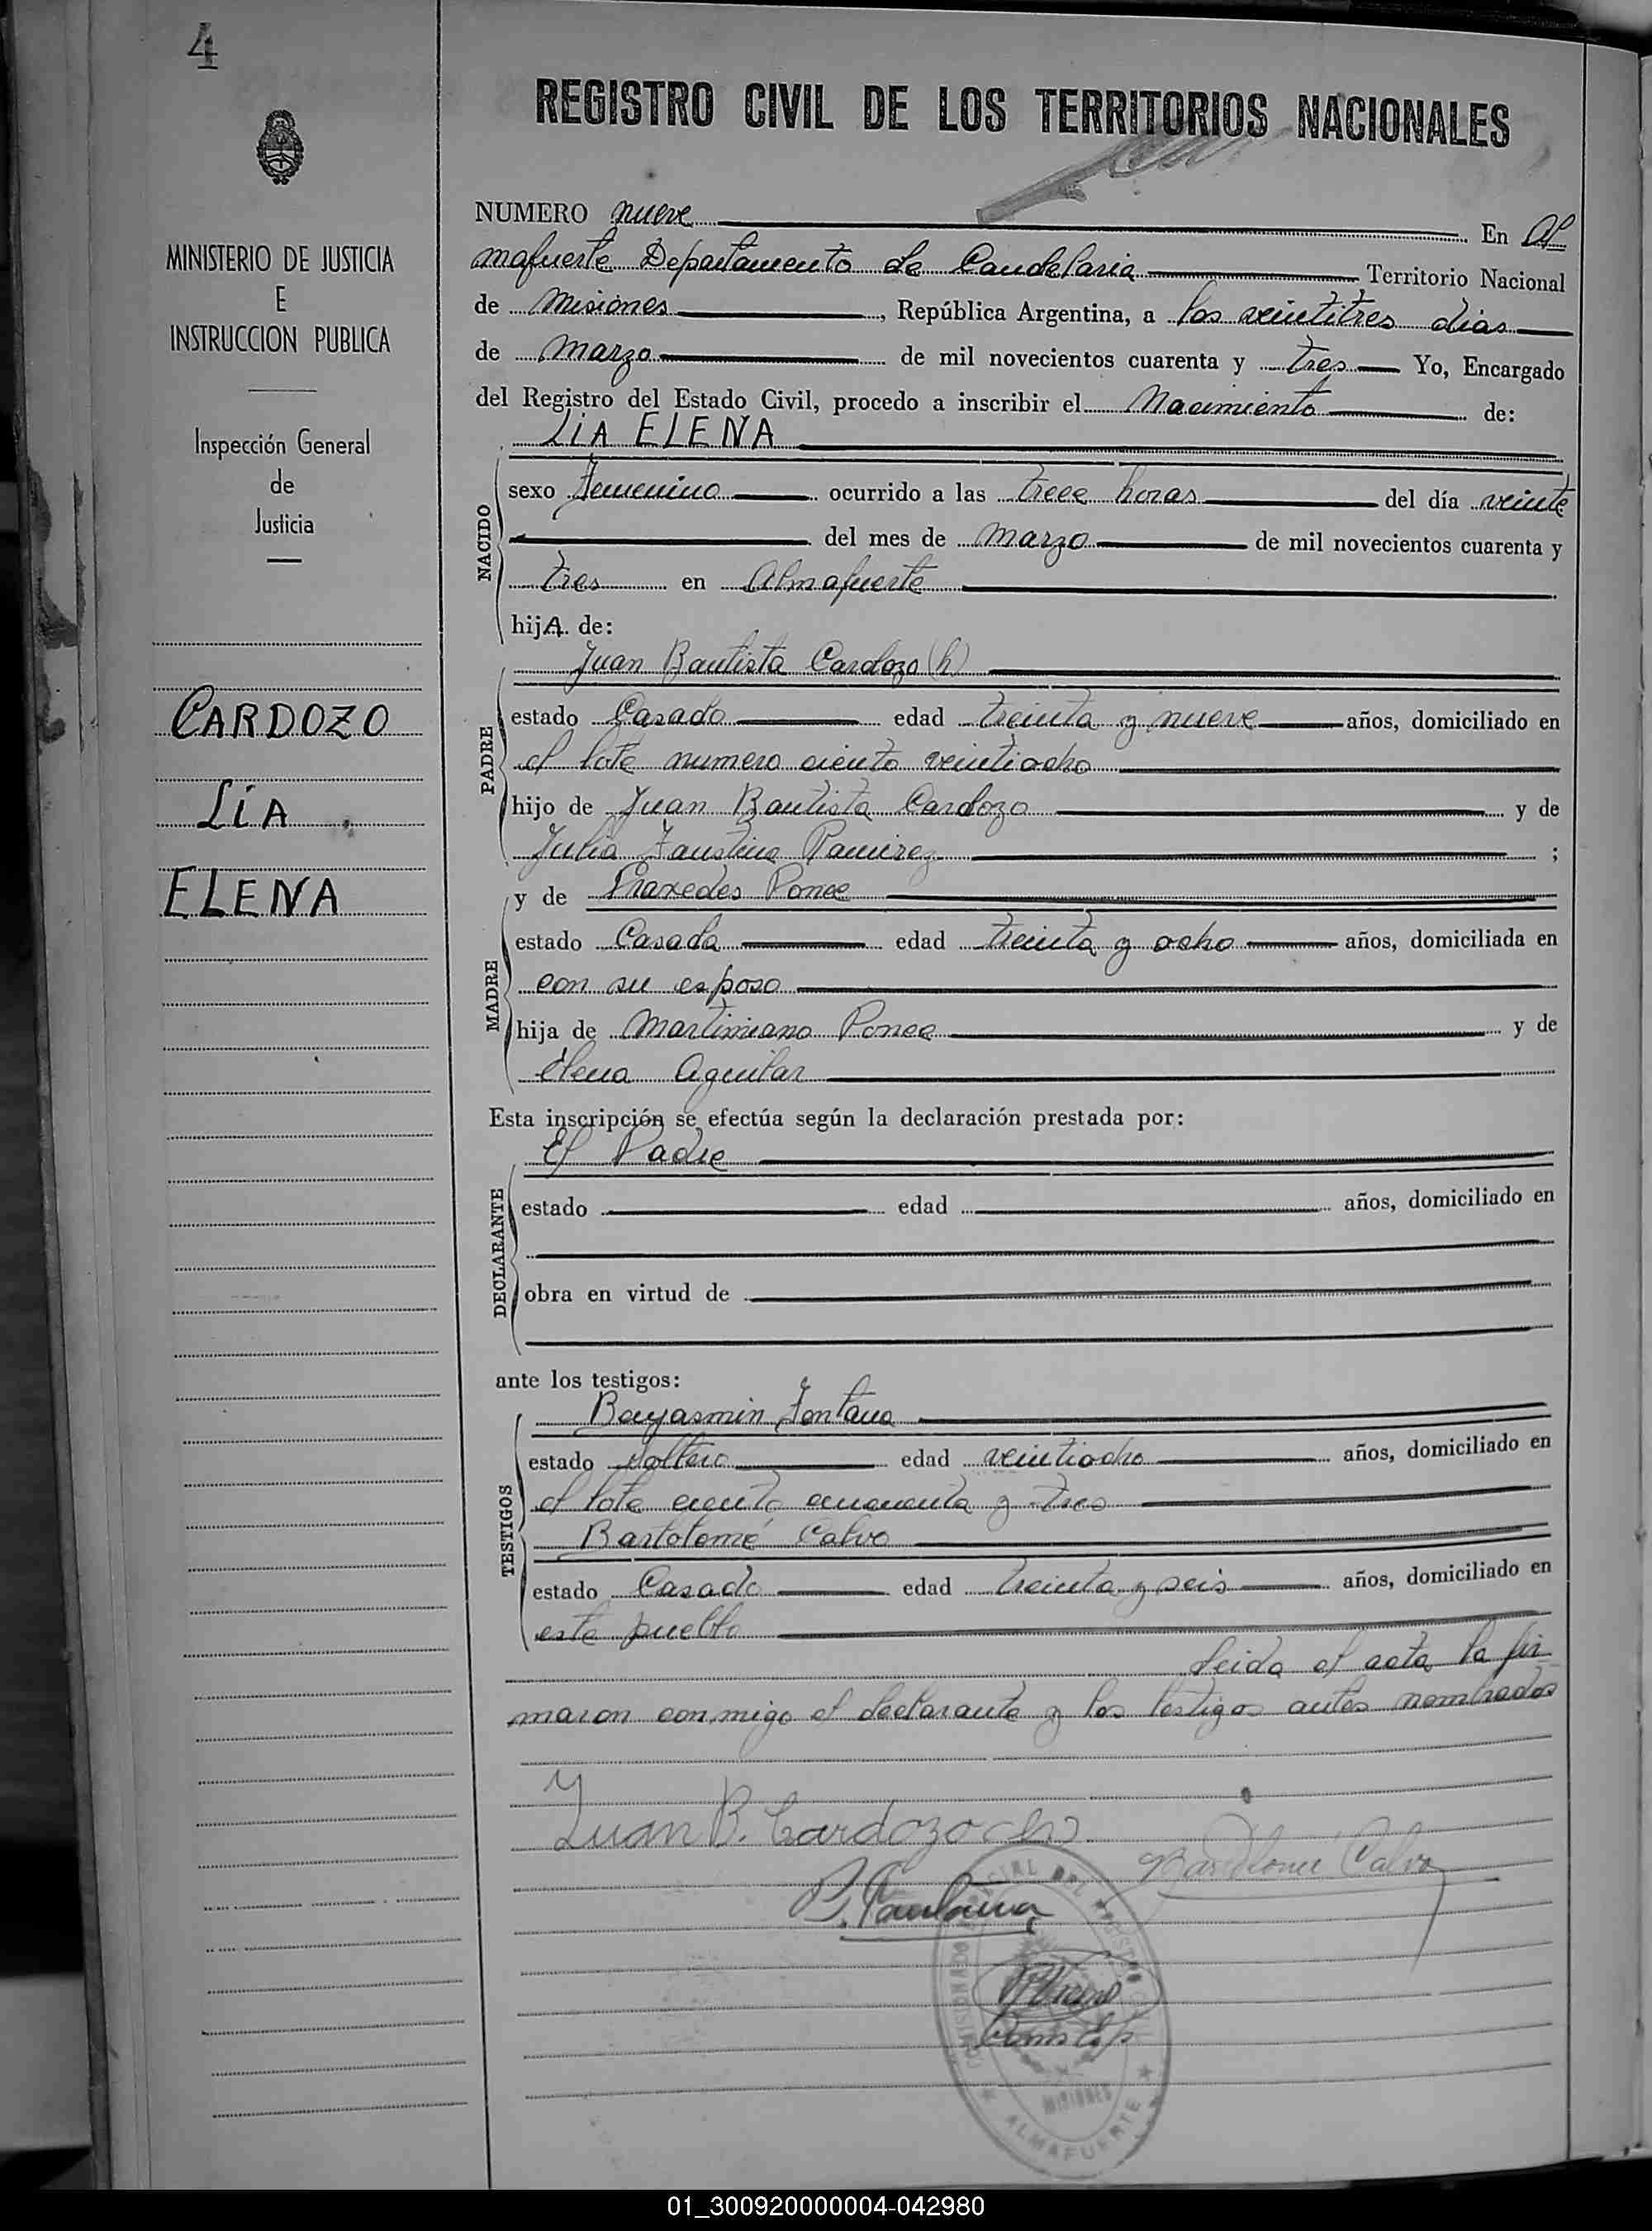 4
REGISTRO CIVIL DE LOS TERRITORIOS NACIONALES
MINISTERIO DE JUSTICIA
E
INSTRUCCION PUBLICA
Inspección General
de
Justicia
CARDOZO
LIA
ELENA
NUMERO nueve En Al
mafuerte Departamento de Candelaria Territorio Nacional
de Misiones, República Argentina, a los veintitres dias
de Marzo de mil novecientos cuarenta y tres Yo, Encargado
del Registro del Estado Civil, procedo a inscribir el Nacimiento de:
LIA ELENA
NACIDO
sexo Femenino ocurrido a las trece horas del día veinte
del mes de Marzo de mil novecientos cuarenta y
tres en Almafuerte
hijA. de:
Juan Bautista Cardozo (h)
PADRE
estado Casado edad treinta y nueve años, domiciliado en
el lote numero ciento veintiocho
hijo de Juan Bautista Cardozo y de
Julia Faustina Ramirez ;
y de Praxedes Ponce
MADRE
estado Casada edad treinta y ocho años, domiciliada en
con su esposo
hija de Martiniano Ponce y de
Elena Aguilar
Esta inscripción se efectúa según la declaración prestada por:
El Padre
DECLARANTE
estado edad años, domiciliado en
obra en virtud de
ante los testigos:
Benjasmin Fontana
TESTIGOS
estado soltero edad veintiocho años, domiciliado en
el lote ciento cuarenta y tres
Bartolomé Calvo
estado Casado edad treinta y seis años, domiciliado en
este pueblo
Leida el acta la fir
maron conmigo el declarante y los testigos antes nombrados
Juan B. Cardozo (h)
Bartolomé Calvo
B. Fontana
MISIONES
ALMAFUERTE
01_300920000004-042980